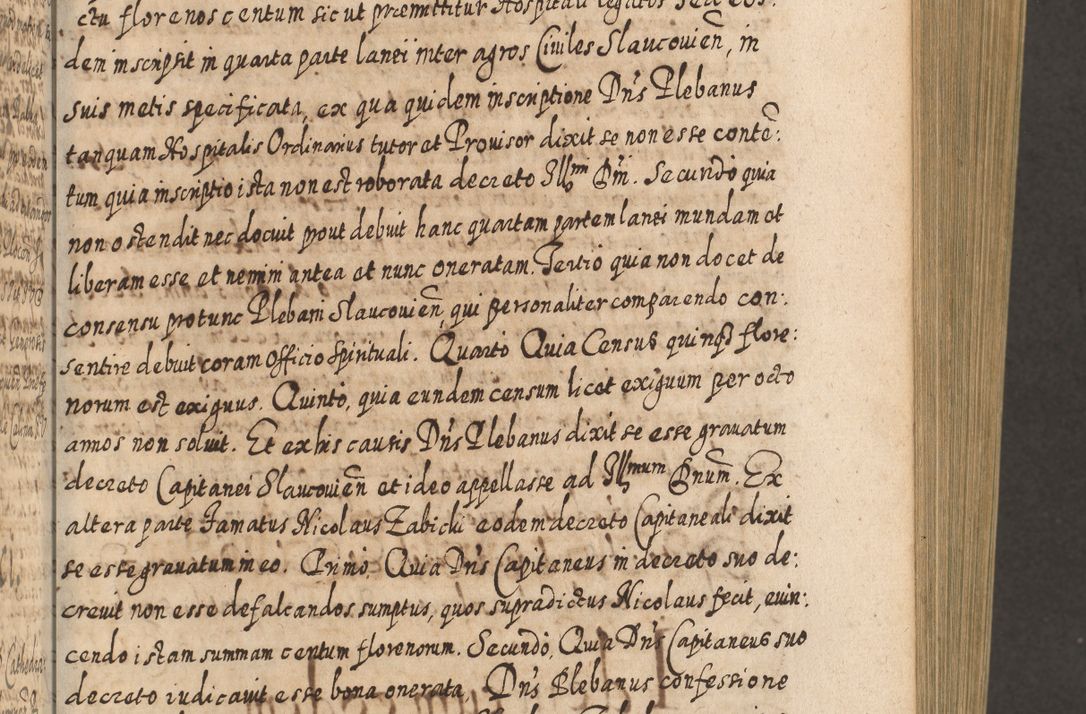 ctu florenos centum sicut præmittitur Hospitali legatos seu eos:
dem inscripsit in quarta parte lanei inter agros Ciuiles Slaucouien̄, in
suis metis specificata, ex qua quidem inscriptione Dn̄s Plebanus
tanquam Hospitalis Ordinarius tutor et Prouisor dixit se non esse contē:
tum quia inscriptio ista non est roborata decreto Illmi Dn̄i. Secundò quia
non ostendit nec docuit prout debuit hanc quartam partem lanei mundam et
liberam esse et nemini antea et nunc oneratam. Tertio quia non docet de
consensu protunc Plebani Slaucouien̄, qui personaliter comparendo con:
sentire debuit coram Officio spirituali. Quartò Quia Census quinq3 flore:
norum est exiguus. Quintò, quia eundem censum licet exiguum per octo
annos non soluit. Et ex his causis Dn̄s Plebanus dixit se esse grauatum
decreto Capitanei Slaucouien̄ et ideo appellasse ad Illmum Dnum̄. Ex
altera parte Famatus Nicolaus Zabicki eodem decreto Capitaneali dixit
se esse grauatum in eo. Primò, Quia Dn̄s Capitaneus in decreto suo de:
creuit non esse defalcandos sumptus, quos supradictus Nicolaus fecit, euin:
cendo istam summam centum florenorum. Secundò, Quia Dn̄s Capitaneus suo
decreto iudicauit esse bona onerata, Dn̄s Plebanus confessione